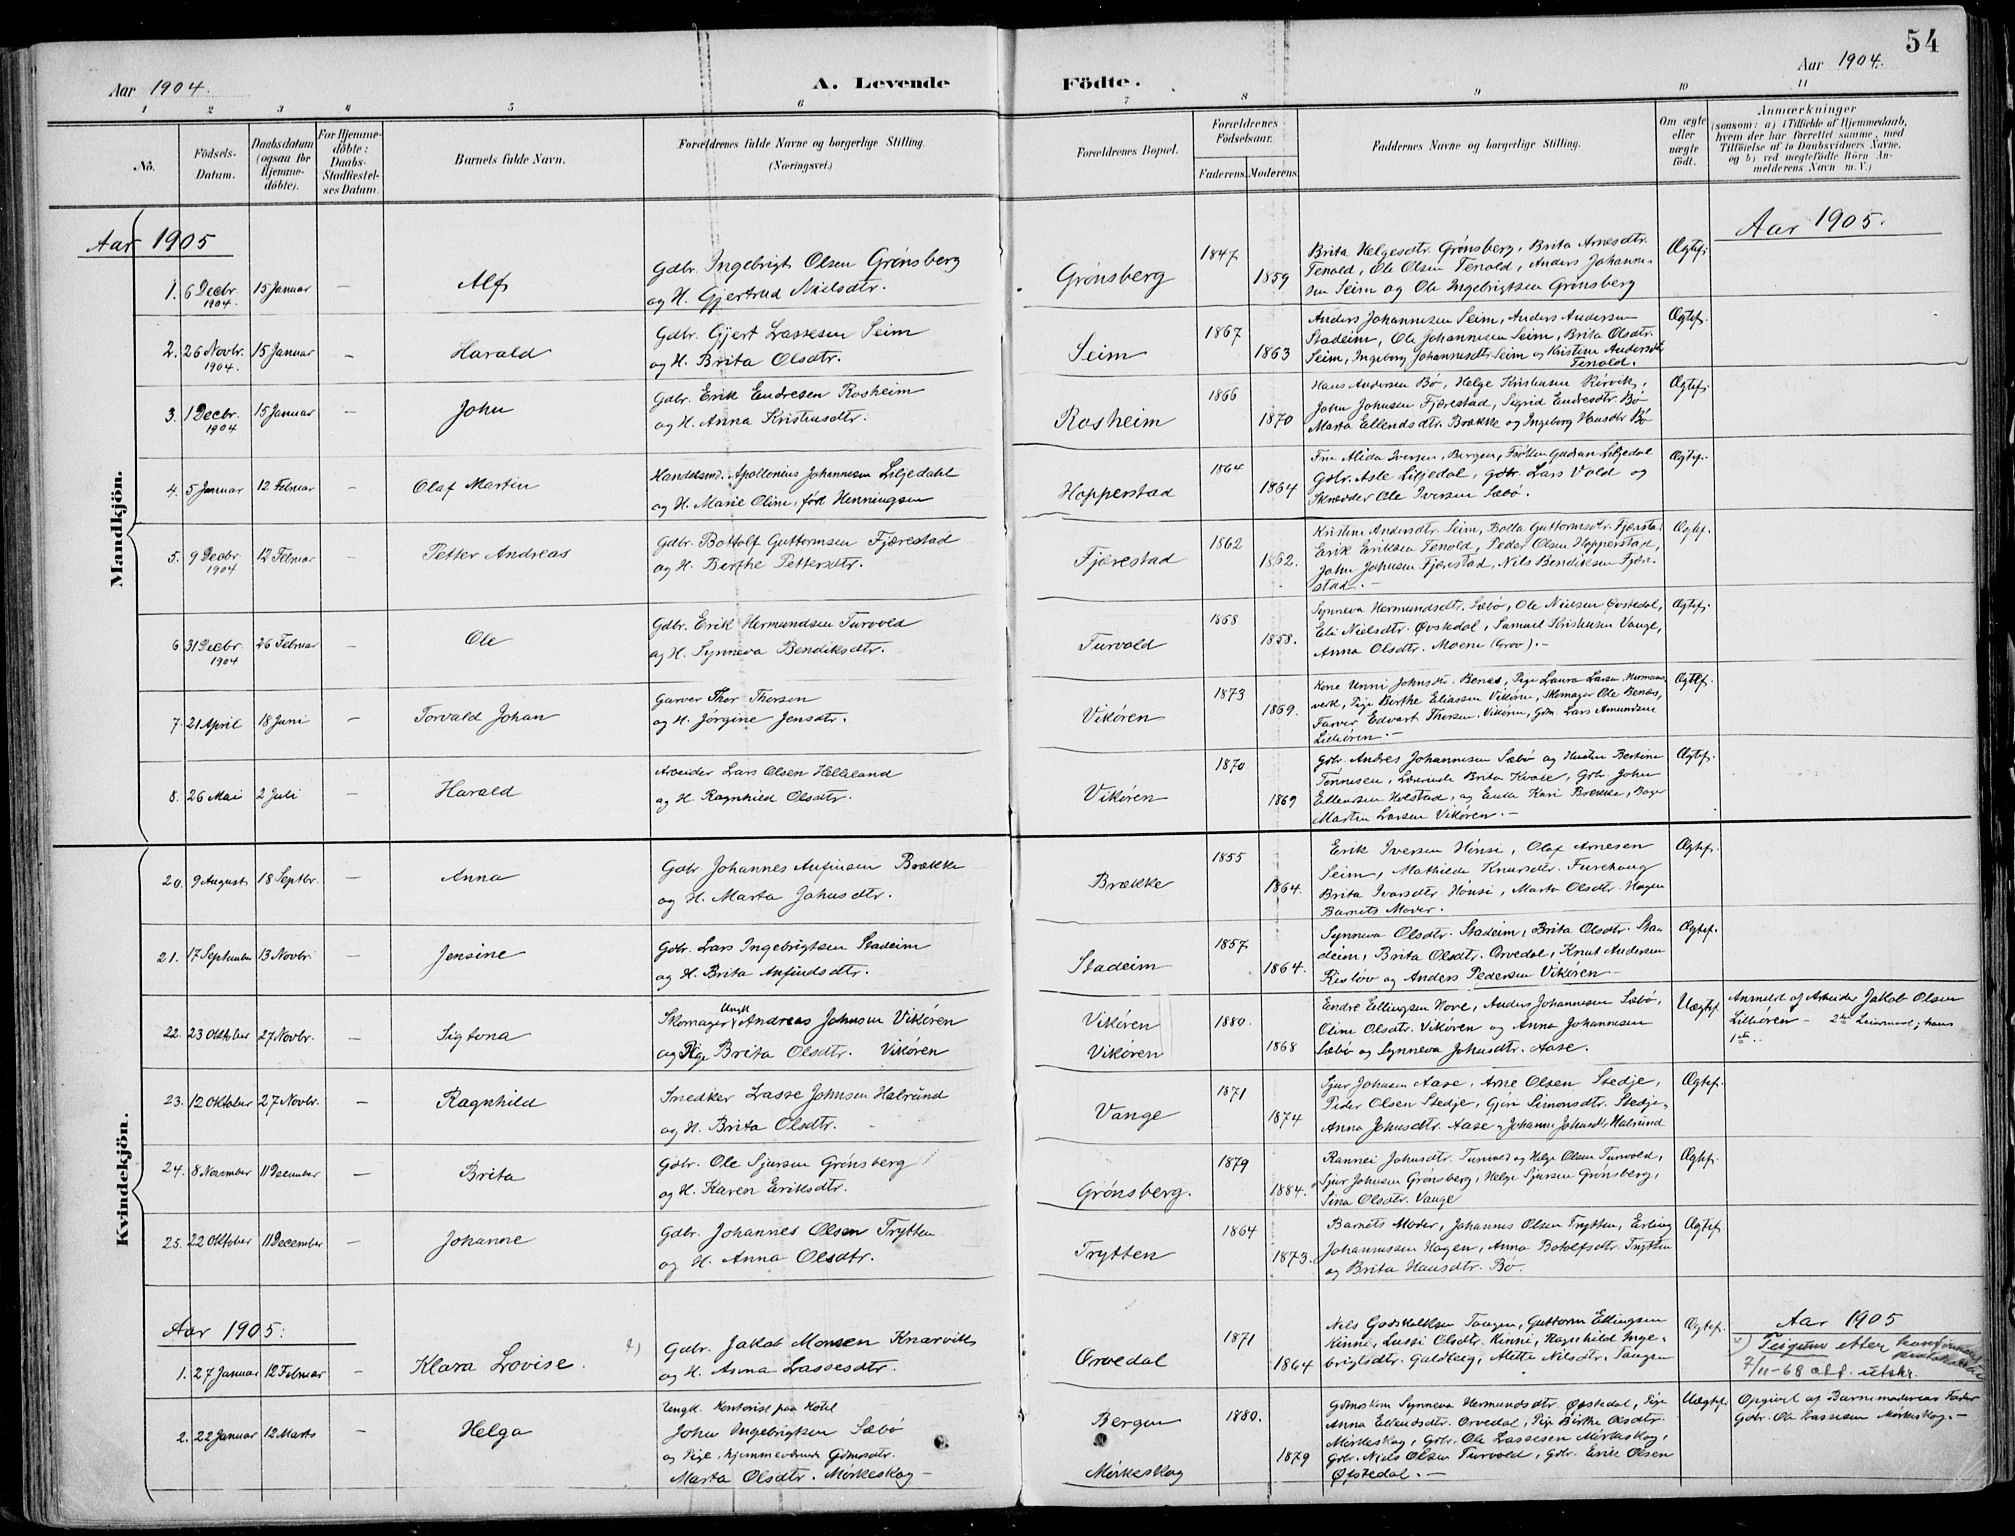 54
Aar 1904.
A. Levende Födte.
Aar 1904.
1 2 3 4 5 6 7 8 9 10 11
No.
Födsels-Datum.
Daabsdatum (ogsaa for Hjemme-döbte).
For Hjemme-döbte: Daabs-Stadfæstel-ses Datum.
Barnets fulde Navn.
Forældrenes fulde Navne og borgerlige Stilling.
(Næringsvei.)
Forældrenes Bopæl.
Forældrenes Födselsaar.
Faderens. Moderens.
Faddernes Navne og borgerlige Stilling.
Om ægte eller uægte födt.
Anmærkninger
(saasom: a) i Tilfælde af Hjemmedaab,
hvem der har forrettet samme, med
Tilföielse af to Daabsvidners Navne,
og b) ved uægtefödte Börn An-
melderens Navn m. V.)
Mandkjön.
Aar 1905
Aar 1905.
1. 6 Decbr. 1904. 15 Januar — Alf
Gdbr. Ingebrigt Olsen Grønsberg
og H. Gjertrud Nielsdtr.
Grønsberg 1847 1859
Brita Helgesdtr. Grønsberg, Brita Arnesdtr.
Tenold, Ole Olsen Tenold, Anders Johanne-
sen Seim og Ole Ingebrigtsen Grønsberg
Ægtef.
2. 26 Novbr. 1904. 15 Januar — Harald
Gdbr. Gjert Lassesen Seim
og H. Brita Olsdtr.
Seim 1867 1863
Anders Johannesen Seim, Anders Andersen
Stadeim, Ole Johannesen Seim, Brita Olsdtr.
Seim, Ingeborg Johannesdtr. Seim og Kristine Andersdtr.
Tenold.
Ægtef.
3. 1 Decbr. 1904 15 Januar — John
Gdbr. Erik Endresen Rosheim
og H. Anna Kristensdtr.
Rosheim 1866 1870
Hans Andersen Bø, Helge Kristensen Rørvik,
John Johnsen Fjærestad, Sigrid Endresdtr. Bø
Marta Ellendsdtr. Brække og Ingeborg Hansdtr. Bø
Ægtef.
4. 5 Januar 12 Februar — Olaf Martin
Handelsmd. Apollonius Johannesen Liljedahl
og H. Marie Oline, født Henningsen
Hopperstad 1864 1864
Fru Alida Iversen, Bergen, Frøken Gudrun Liljedal
Gdbr. Asle Liljedal, gdbr. Lars Vold og
Skrædder Ole Iversen Sæbø.
Ægtef.
5. 9 Decbr. 1904 12 Februar — Petter Andreas
Gdbr. Bottolf Guttormsen Fjærestad
og H. Berthe Pettersdtr.
Fjærestad 1862 1862.
Kristine Andersdtr. Seim, Bolla Guttormsdtr. Fjæresta.
Erik Eriksen Tenold, Peder Olsen Hopperstad,
John Johnsen Fjærestad, Nils Bendiksen Fjære-
stad.
Ægtef.
6. 31 Decbr. 1904 26 Februar — Ole
Gdbr. Erik Hermundsen Turvold
og H. Synneva Bendiksdtr.
Turvold 1868 1858.
Synneva Hermundsdtr. Sæbø, Ole Nielsen Øvstedal,
Eli Nielsdtr. Øvstedal, Samuel Kristensen Vange,
Anna Olsdtr. Moene (Grov).
Ægtef.
7. 21 April 18 Juni — Torvald Johan
Garver Thor Thorsen
og H. Jørgine Jensdtr.
Vikøren 1873 1869.
Kone Unni Johnsdtr. Benæs, Pige Laura Larsen
Pige Berthe Eliassen Vikøren, Skomager Ole Benæs,
Farver Edvart Thorsen, Vikøren, Gdm. Lars Amundsen
Lilliøren.
Ægtef.
8. 26 Mai 2 Juli — Harald
Arbeider Lars Olsen Helleland
og H. Ragnhild Olsdtr.
Vikøren 1870 1869
Gdbr. Andres Johannesen Sæbø og Hustru Bertine
Tønnesen, Lærerinde Brita Kvale, Gdbr. John
Ellendsen Holstad, og Enke Kari Brække, Bager
Martin Larsen Vikøren.
Ægtef.
Kvindekjön.
20. 9 August 18 Septbr. — Anna
Gdbr. Johannes Anfinsen Brække
og H. Marta Johnsdtr.
Brække 1855 1864.
Erik Iversen Hønsi, Olaf Arnesen
Seim, Mathilde Knutsdtr. Furehaug
Brita Ivarsdtr. Hønsi, Marta Olsdtr. Hagen
Barnets Moder.
Ægtef.
21. 17 September 13 Novbr. — Jensine
Gdbr. Lars Ingebrigtsen Stadeim
og H. Brita Anfindsdtr.
Stadeim 1857 1864.
Synneva Olsdtr. Stadeim, Brita Olsdtr. Sta-
deim, Brita Olsdtr. Orvedal, Knut Andersen
Risløv og Anders Pedersen Vikøren
Ægtef.
22. 23 Oktober 27 Novbr. — Sigtona
Skomager Ungk. Andreas Johnsen Vikøren
og Pige Brita Olsdtr. Vikøren
Vikøren
Vikøren
1880. 1868
Endre Ellingsen Hove, Anders Johannesen Sæbø,
Oline Olsdtr. Vikøren og Anna Johannesen
Sæbø og Synneva Johnsdtr. Aase.
Uægtef.
Anmeldt af Arbeider Jakob Olsen
Lilliøren — 2det Leiermaal; hans
1ste
23. 12 Oktober 27 Novbr. — Ragnhild
Snedker Lasse Johnsen Halsund
og H. Brita Olsdtr.
Vange 1871 1874
Sjur Johnsen Aase, Arne Olsen Stedje,
Peder Olsen Stedje, Gjøri Simonsdtr. Stedje,
Anna Johnsdtr. Aase, Johanne Johnsdtr. Halsund
Ægtef.
24. 8 November 11 December — Brita
Gdbr. Ole Sjursen Grønsberg
og H. Karen Eriksdtr.
Grønsberg. 1879 1884.
Rannei Johnsdtr. Turvold og Helge Olsen Turvold,
Sjur Johnsen Grønsberg, Helge Sjursen Grønsberg,
Sina Olsdtr. Vange
Ægtef.
25. 22 Oktober 11 December — Johanne
Gdbr. Johannes Olsen Trytten
og H. Anna Olsdtr.
Trytten 1864 1873.
Barnets Moder, Johannes Olsen Trytten, Erling
Johannessen Hagen, Anna Botolfsdtr. Trytten
og Brita Hansdtr. Bø.
Ægtef.
Aar 1905:
Aar 1905
1. 27 Januar 12 Februar — Klara Lovise.
Gdbr. Jakob Monsen Knarvik
og H. Anna Lassesdtr.
Orvedal 1871 1864
Nils Godskalksen Tangen, Guttorm Ellingsen
Kinni, Lussi Olsdtr. Kinni, Ragnhild Inge-
brigtsdtr. Guldberg, Alette Nilsdtr. Tangen
Ægtef.
x) Teigum etter
7/11-68 att. utskr.
2. 22 Januar 12 Marts — Helga
Ungk. Kontorist paa Hotel
John Ingebrigtsen Sæbø
og Pige, hjemmeværende Gdmsdtr.
Marta Olsdtr. Mørkeskog
Bergen
Mørkeskog
1880. 1879
Gdmskone Synneva Hermundsdtr. Øfstedal, Pige
Anna Ellendsdtr. Orvedal, Pige Birthe Olsdtr.
Mørkeskog, Gdbr. Ole Lassesen Mørkeskog,
Gdbr. Niels Olsen Turvold, Gdbr. Erik Olsen
Øfstedal.
Uægtef.
Opgivet af Barnemoderens Fader
Gdbr. Ole Lassesen Mørkeskog.